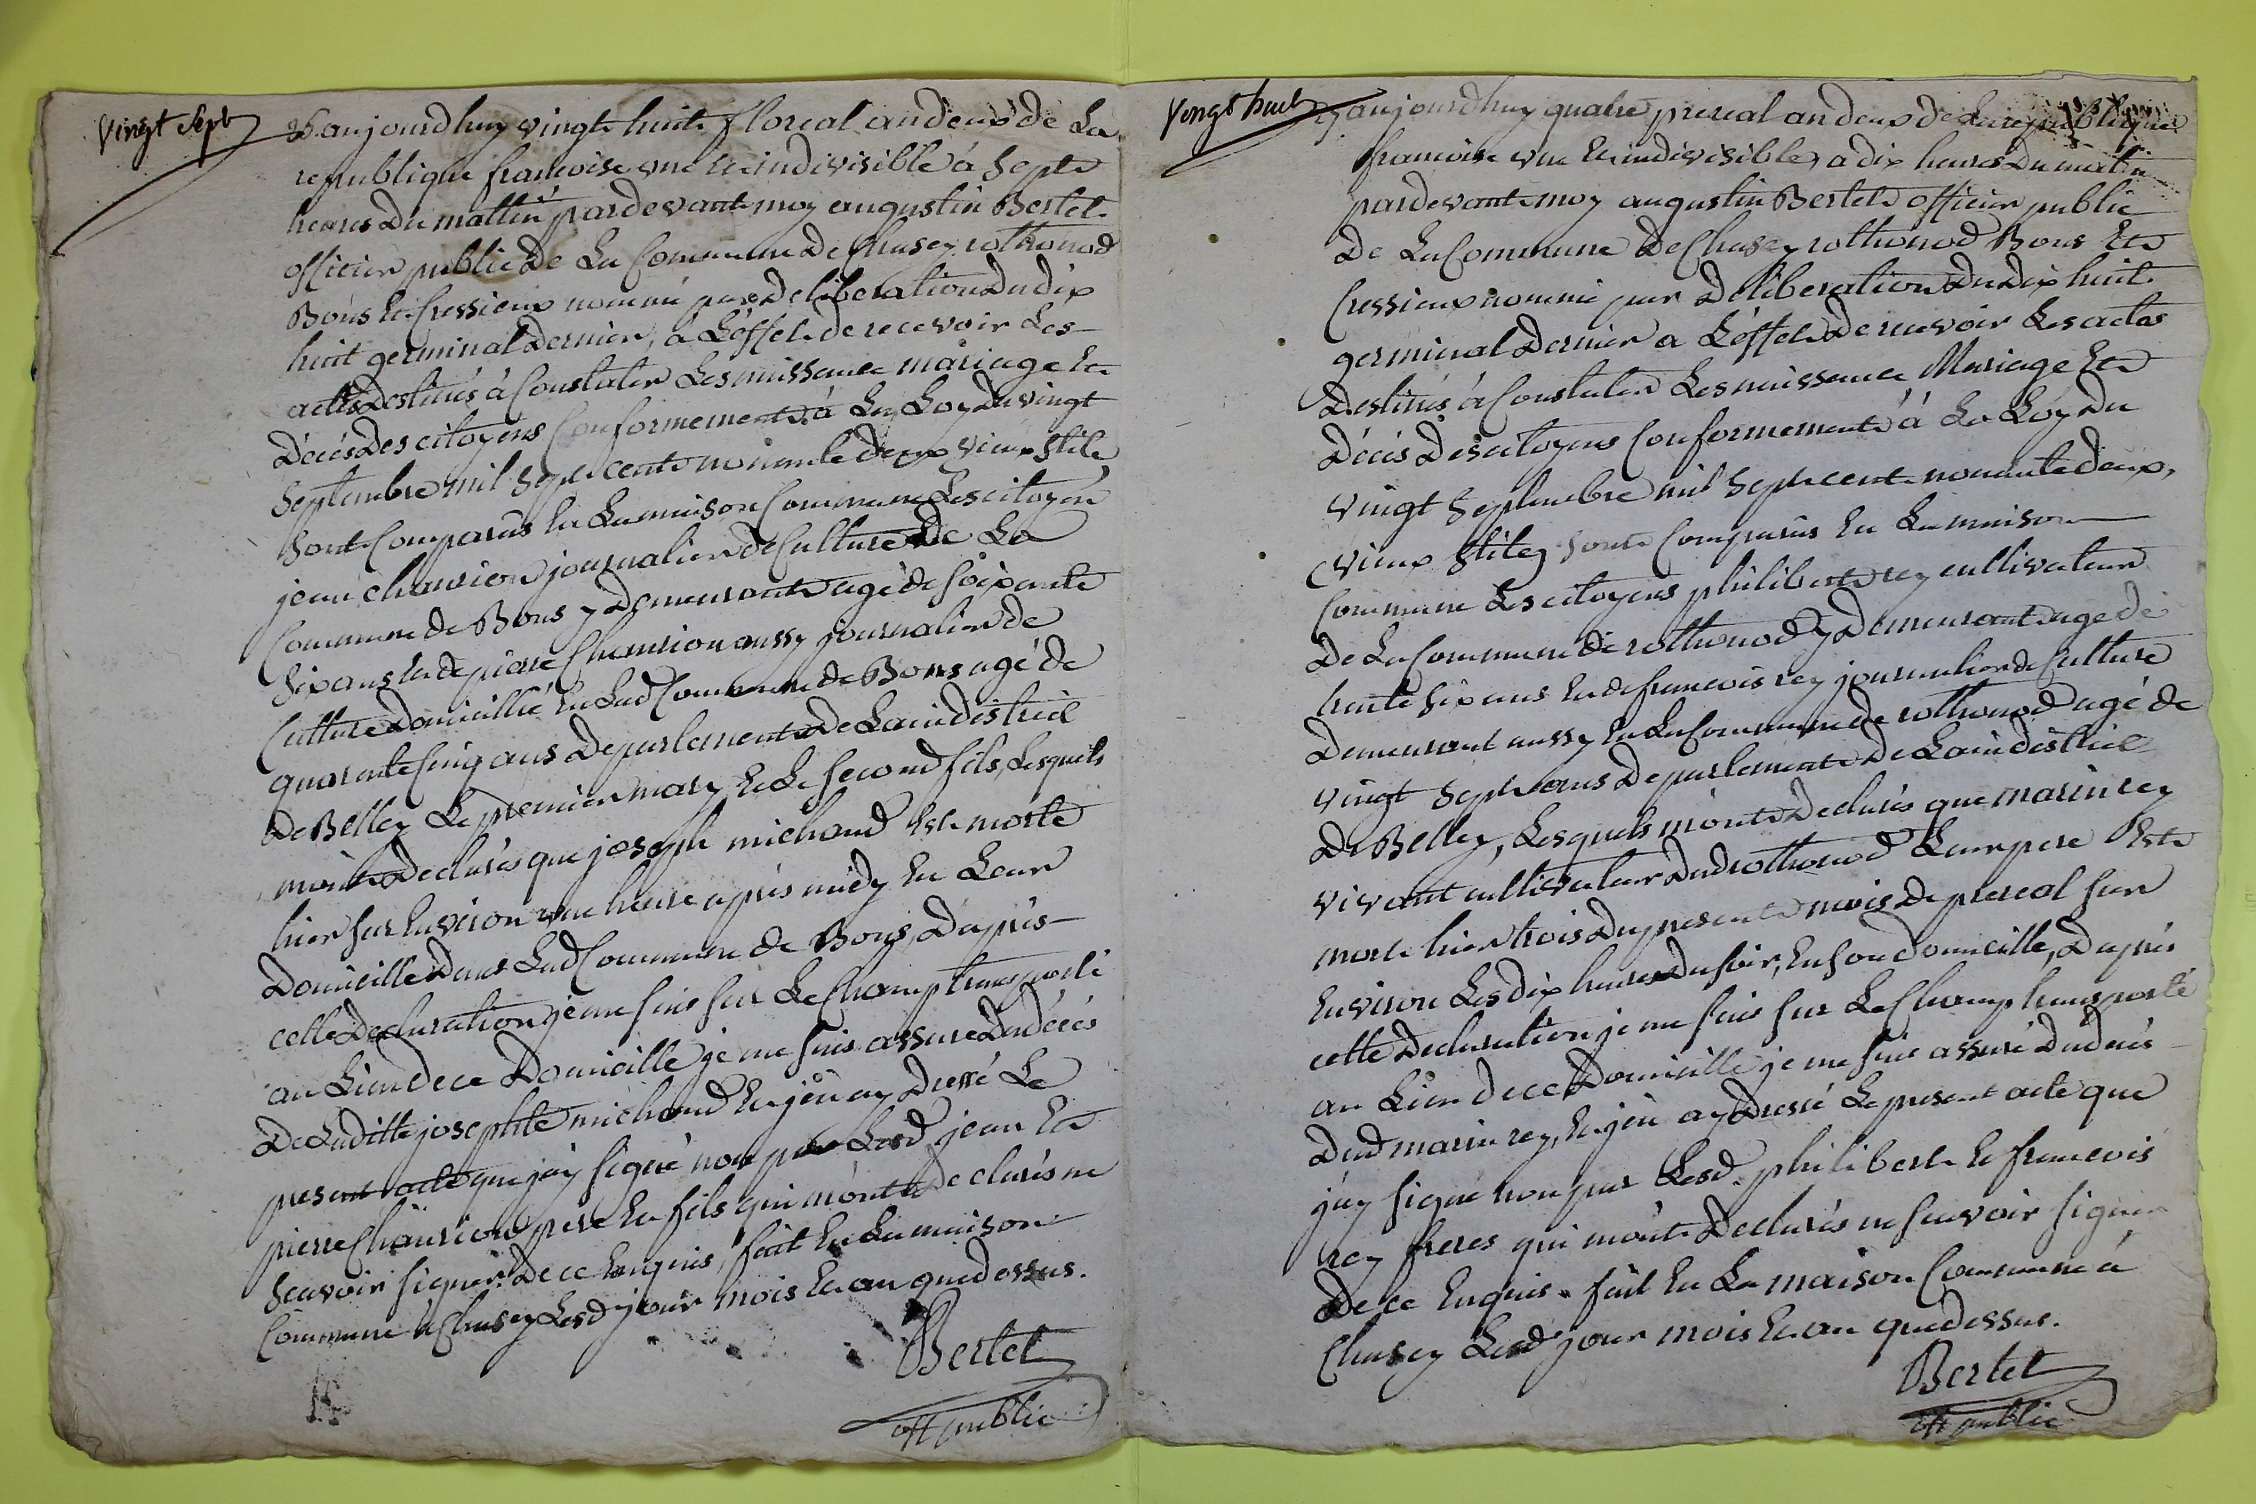 Vingt Sept
aujourdhuy vingt huit floreal an deux de La
republique francoise une et indivisible à Sept
heures du mattin pardevant moy augustin Bertet
officier public de La Commune de Chasey rothonod
Bons et Cressieux nommé par deliberation du dix
huit germinal dernier, à L'effet de recevoir Les
actes destinés à Constater Les naissance mariage et
décès des citoyens Conformement à La Loy du vingt
Septembre mil Sept cent nonante deux vieux Stile
Sont Comparus en La maison Commune Les citoyen
jean chaurion journalier de Culture de La
Commune de Bons y demeurant agé de Soixante
Six ans et de pierre Chaurion aussy journalier de
Culture domicillié en Lad Commune de Bons agé de
quarente Cinq ans departement de Lain district
de Belley Le premier mary et Le Second fils, Lesquels
m'ont declarés que joseph michaud est morte
hier sur environ une heure après midy en Leur
domicille dans Lad Commune de Bons, Dapres
cette declaration je me suis sur Le Champ transporté
au Lieu de ce domicille je me suis assuré du décès
de Laditte josephte michaud et j'en ay dressé Le
present acte que j'ay signé non par Lesd jean et
pierre Chaurion pere et fils qui m'ont declarés ne
scavoir signer de ce enquis, fait en La maison
Commune à Chasey Lesd jour mois et an que dessus.
Bertet
off public
Vingt huit
aujourdhuy quatre prereal an deux de La republique
francoise une et indivisible, a dix heures du matin
pardevant moy augustin Bertet officier public
de La Commune de Chasey rothonod Bons et
Cressieux nommé par deliberation du dix huit
germinal dernier a L'effet de recevoir Les actes
destinés à Constater Les naissance Mariage et
décès des citoyens Conformement à La Loy du
vingt Septembre mil Sept cent nonante deux,
vieux Stile, Sont Comparus en La maison
Commune Les citoyens philibert rey cultivateur
de La Commune de rothonod y demeurant agé de
trente Six ans et de francois rey journalier de Culture
demeurant aussy en La Commune de rothonod agé de
vingt Sept ans departement de Lain district
de Belley, Lesquels m'ont declarés que marin rey
vivant cultivateur dud rothonod Leur pere est
mort hier trois du present mois de prereal sur
environ Les dix heures du soir, en son domicille, Dapres
cette declaration je me suis sur Le Champ transporté
au Lieu de ce domicille je me suis assuré du decès
dud marin rey, et j'en ay dressé Le present acte que
j'ay signé non par Lesd. philibert et francois
rey freres qui m'ont declarés ne scavoir signer
de ce enquis. fait en La maison Commune à
Chasey Lesd jour mois et an que dessus.
Bertet
off public